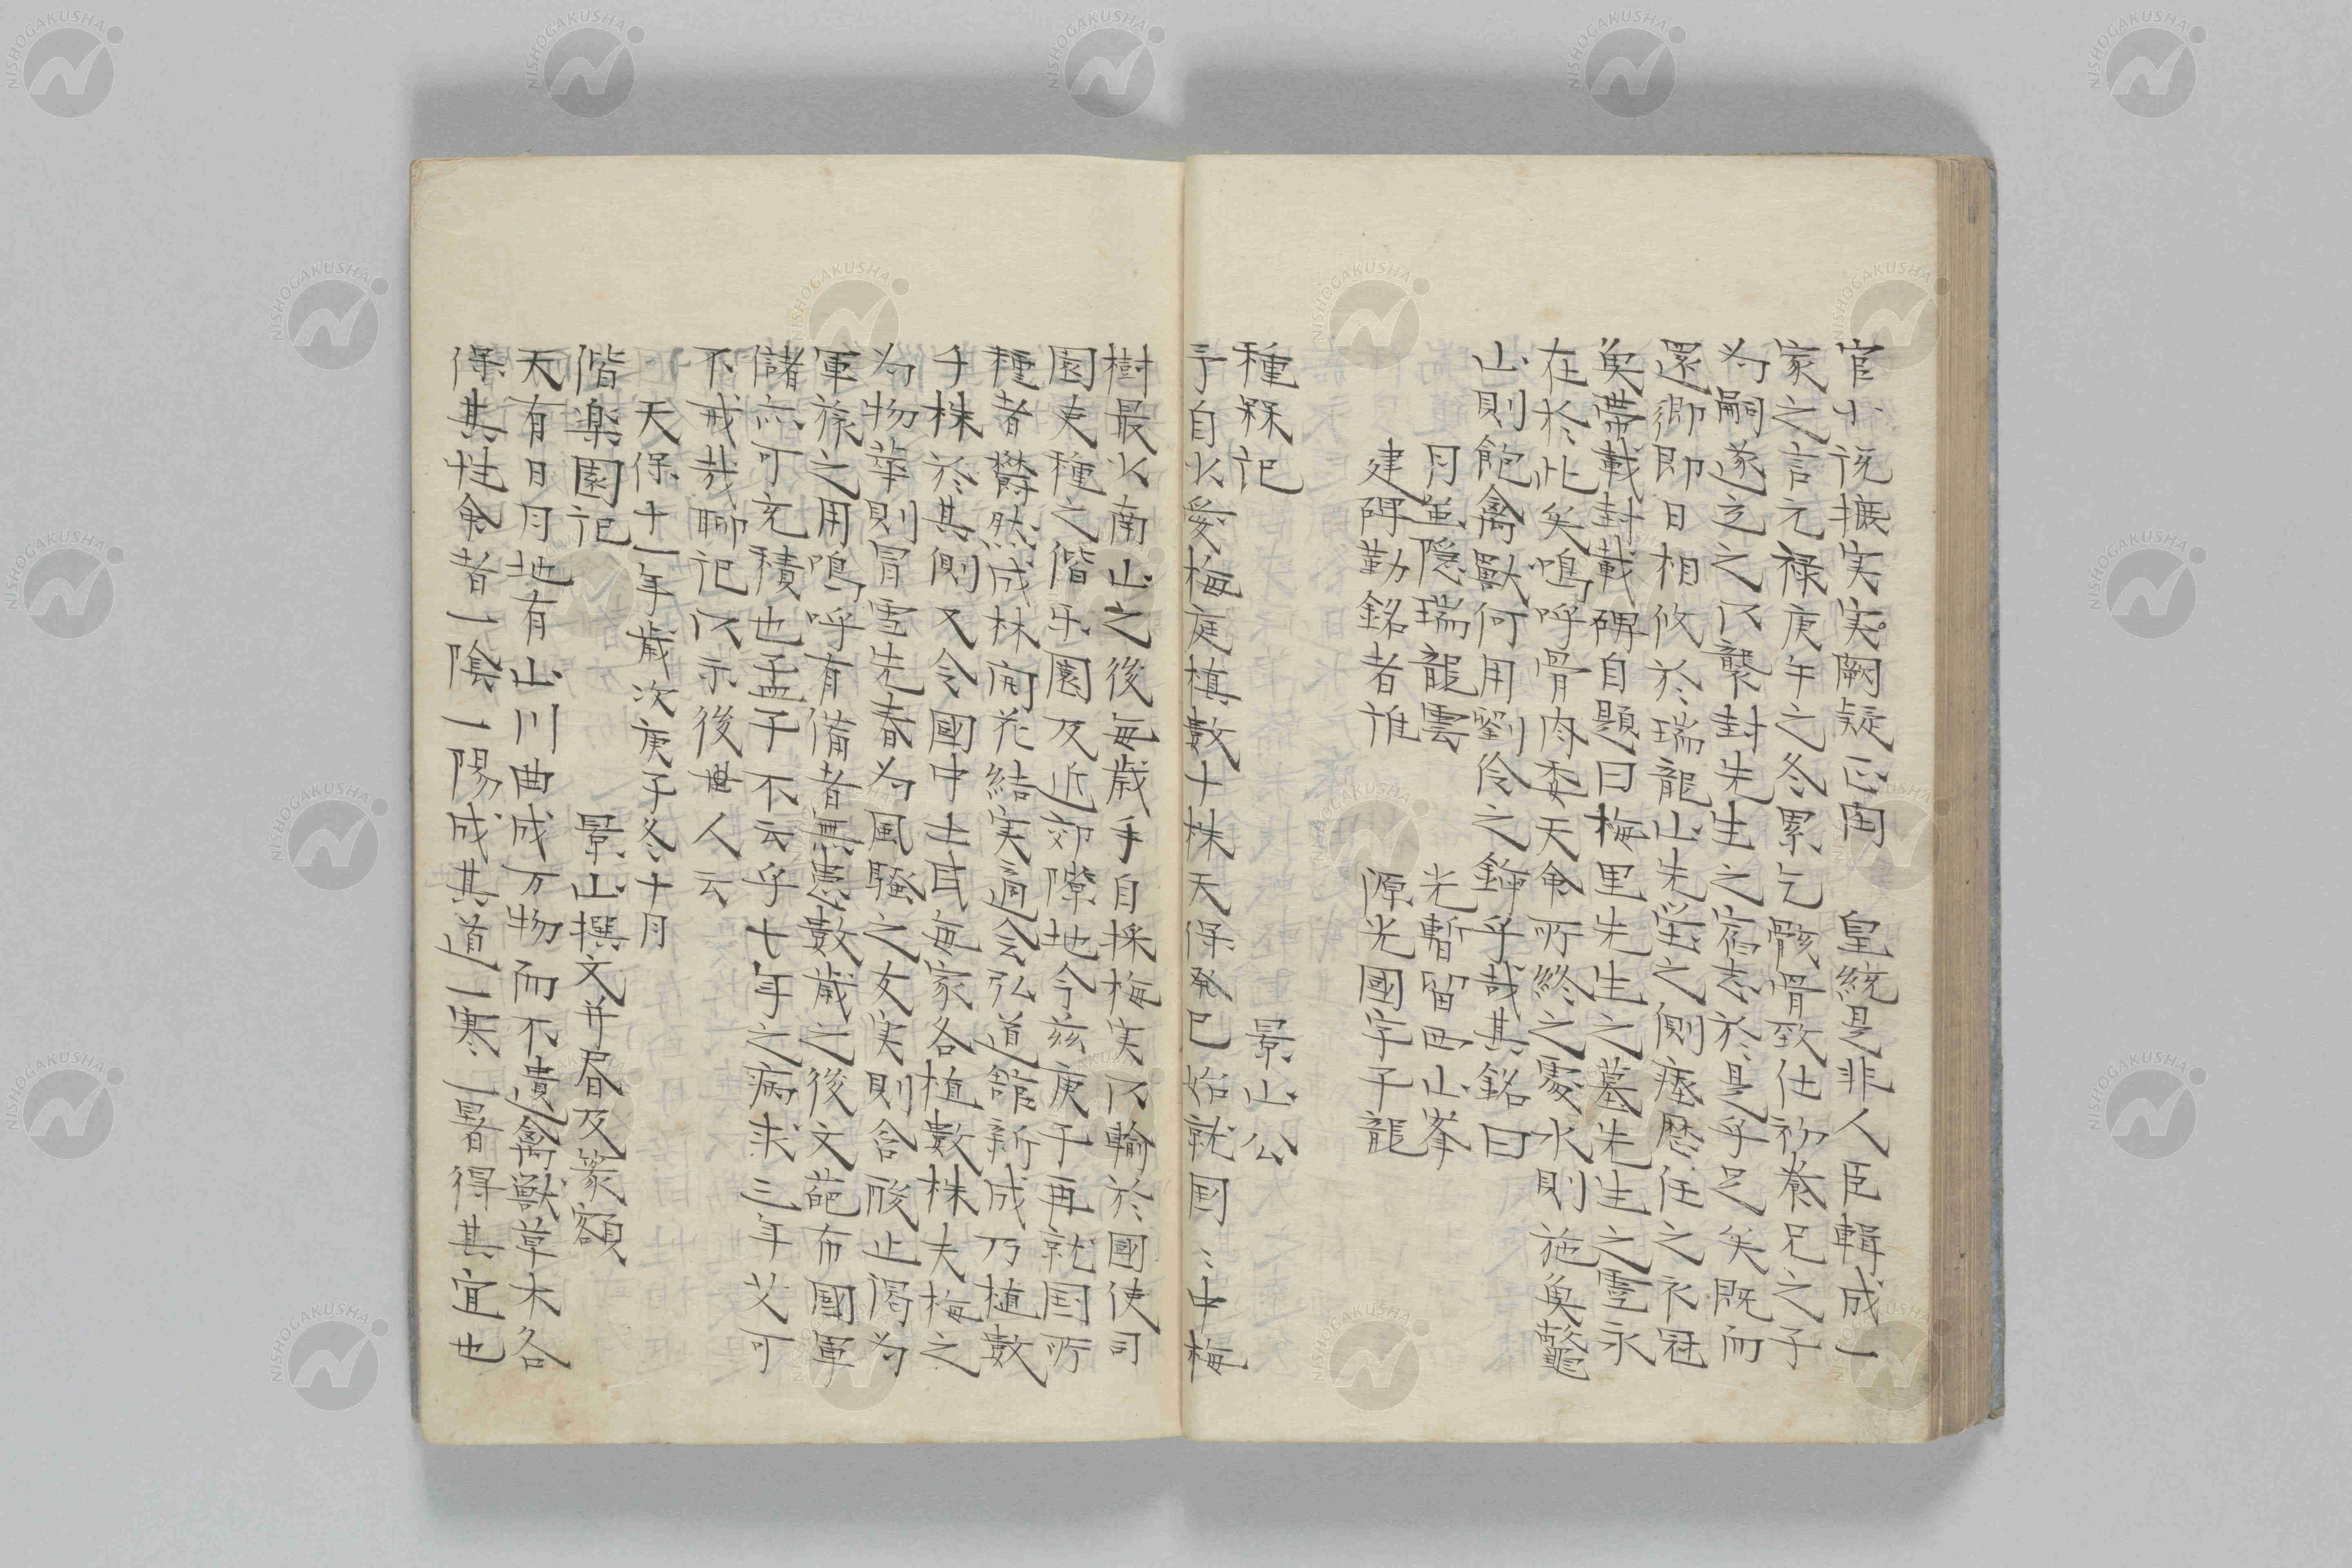 官小説摭実実闕疑正閏　皇統是非人臣輯成一
家之言元禄庚午之冬累乞骸骨致仕初養兄之子
為嗣遂立之以襲封先生之宿志於是乎足矣既而
還郷即日相攸於瑞龍山先塋之側瘞歴任之衣冠
魚帯載封載碑自題曰梅里先生之墓先生之霊永
在於此矣嗚呼骨肉委天命所終之処水則施魚鼈
山則飽禽獣何用劉伶之鍤乎哉其銘曰
月雖隠瑞龍雲　光暫留西山峯
建碑勒銘者誰　源光國字子龍
種梅記　景山公
予自少愛梅庭植数十株天保癸巳始就国〻中梅
樹最少南山之後毎歳手自採梅実以輸於國使司
園吏種之偕乐園及近郊隙地今茲庚子再就国所
種者欝然成林開花結実適会弘道館新成乃植数
千株於其側又令國中士民毎家各植数株夫梅之
為物華則冒雪先春為風騒之友実則含酸止渇為
軍旅之用嗚呼有備者無患数歳之後文葩布國軍
儲亦可充積也孟子不云乎七年之病求三年艾可
不戒哉聊記以示後世人云
天保十一年歳次庚子冬十月
偕楽園記　景山撰文并書及篆額
天有日月地有山川曲成万物而不遺禽獣草木各
保其性命者一陰一陽成其道一寒一暑得其宜也
NISHOGAKUSHA